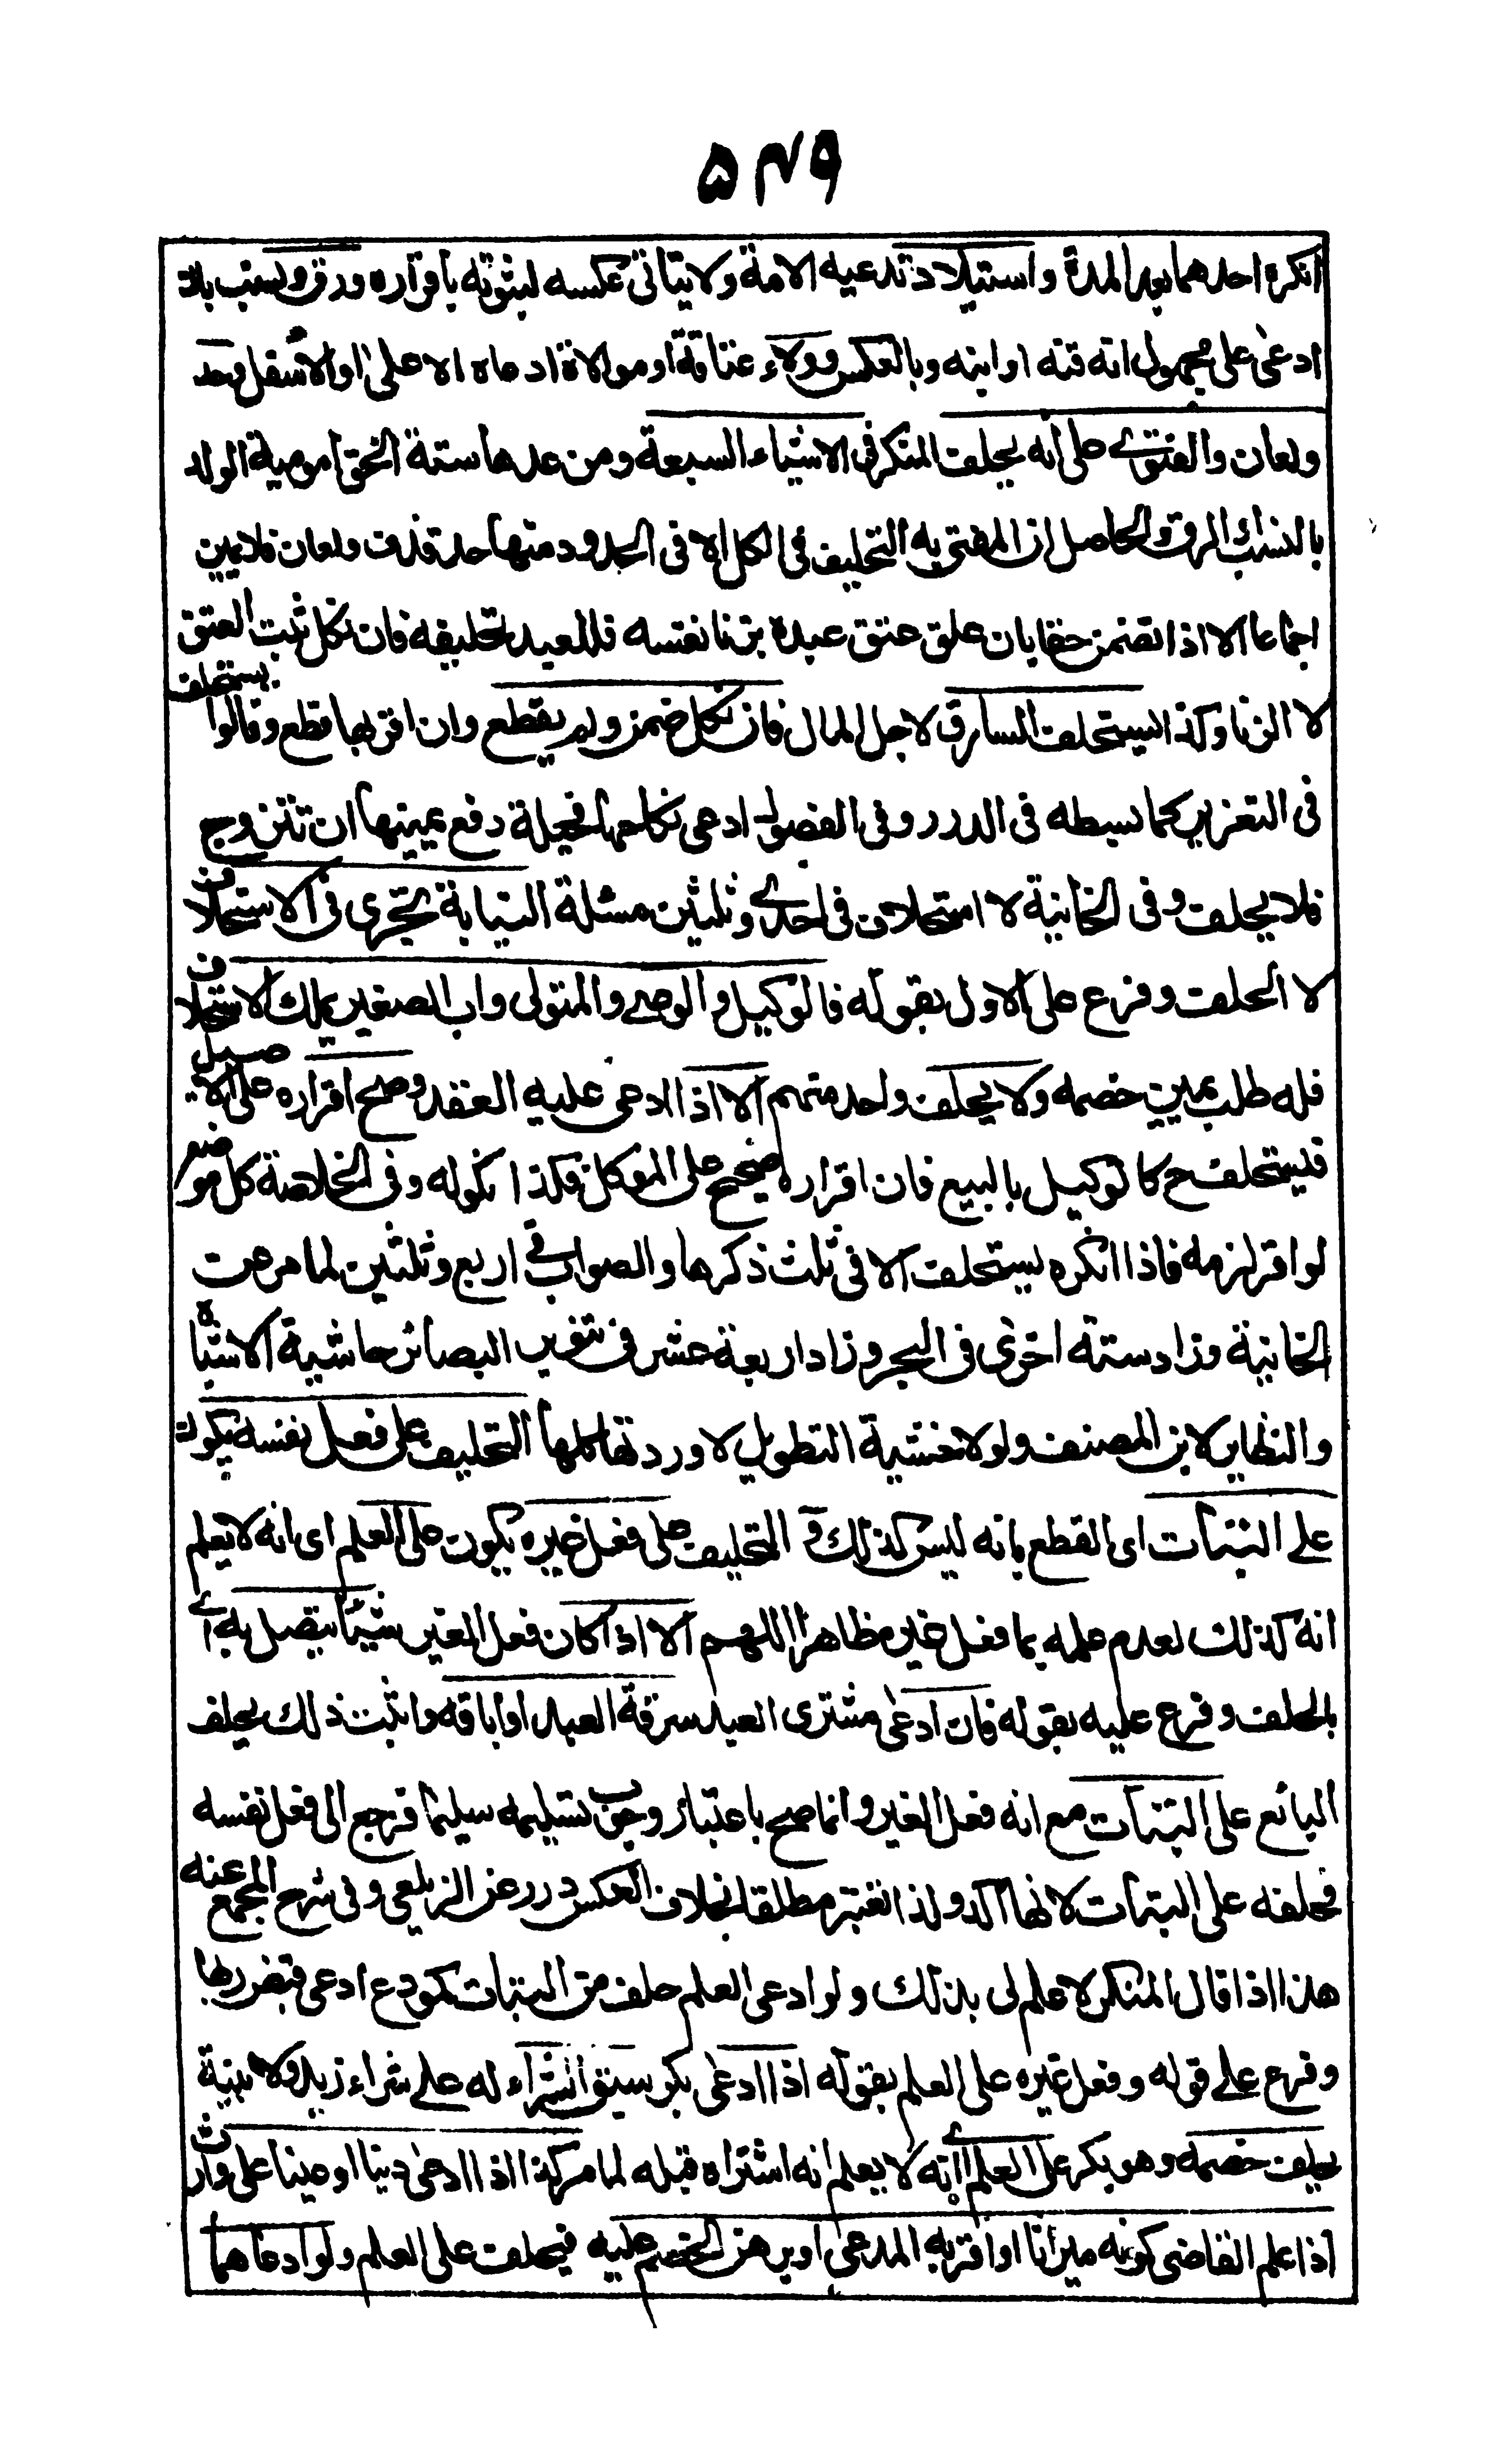 ۵۴۹
انكره احدهما بعد المدة واستيلاد تدعيه الامة ولا يتاتى عكسه لثبوته باقراره ورق ونسب بان
ادعى على مجهول انه قنه او ابنه وبالعكس وولاء عتاقة او موالاة ادعاه الاعلى او الاسفل وحد
ولعان والفتوى على انه يحلف المنكر فى الاشياء السبعة ومن عدها ستة الحق امومية الولد
بالنسب او الرق والحاصل ان المفتى به التحليف فى الكل الا فى الحدود ومنها حد قذف ولعان فلا يمين
اجماعا الا اذا تضمن حقا بان علق عتق عبده بزنا نفسه فللعبد تحليفه فان نكل ثبت العتق
لا الزنا وكذا يستحلف السارق لاجل المال فان نكل ضمن ولم يقطع وان اقر بها قطع وقالوا يستحلف
فى التعزير كما بسطه فى الدرر وفى الفصول ادعى نكاحها فحيلة دفع يمينها ان تتزوج
فلا يحلف وفى الخانية لا استحلاف فى احدى وثلثين مسئلة النيابة تجرى فى الاستحلاف
لا الحلف وفرع على الاول بقوله فالوكيل والوصى والمتولى واب الصغير يملك الاستحلاف
فله طلب يمين خصمه ولا يحلف واحد منهم الا اذا ادعى عليه العقد وصح اقراره على الاصيل
فيستحلف ح كالوكيل بالبيع فان اقراره صحيح على الموكل فكذا نكوله وفى الخلاصة كل موضع
لو اقر لزمه فاذا انكره يستحلف الا فى ثلث ذكرها والصواب فى اربع وثلثين لما مر عن
الخانية وزاد ستة اخرى فى البحر وزاد اربعة عشر فى تنوير البصائر حاشية الاشباه
والنظاير لابن المصنف ولولا خشية التطويل لاوردتها كلها التحليف على فعل نفسه يكون
على البتات اى القطع بانه ليس كذلك و التحليف على فعل غيره يكون على العلم اى انه لا يعلم
انه كذلك لعدم علمه بما فعل غيره ظاهرا اللهم الا اذا كان فعل الغير شيئا يتصل به اى
بالحلف وفرع عليه بقوله فان ادعى مشترى العبد سرقة العبد او اباقه واثبت ذلك يحلف
البائع على البتات مع انه فعل الغير وانما صح باعتبار وجوب تسليمه سليما فرجع الى فعل نفسه
فحلفه على البتات لانها اكد ولذا تعتبر مطلقا بخلاف العكس درر عن الزيلعى وفى شرح المجمع عنه
هذا اذا قال المنكر لا علم لى بذلك ولو ادعى العلم حلف على البتات كمودع ادعى قبض ربها
وفرع على قوله وفعل غيره على العلم بقوله اذا ادعى بكر سبق الشراء له على شراء زيد ولا بينة
يحلف خصمه وهو بكر على العلم اى انه لا يعلم انه اشتراه قبله لما مر كذا اذا ادعى دينا او عينا على وارث
اذا علم القاضى كونه ميراثا او اقر به المدعى او برهن الخصم عليه فيحلف على العلم ولو ادعاهما